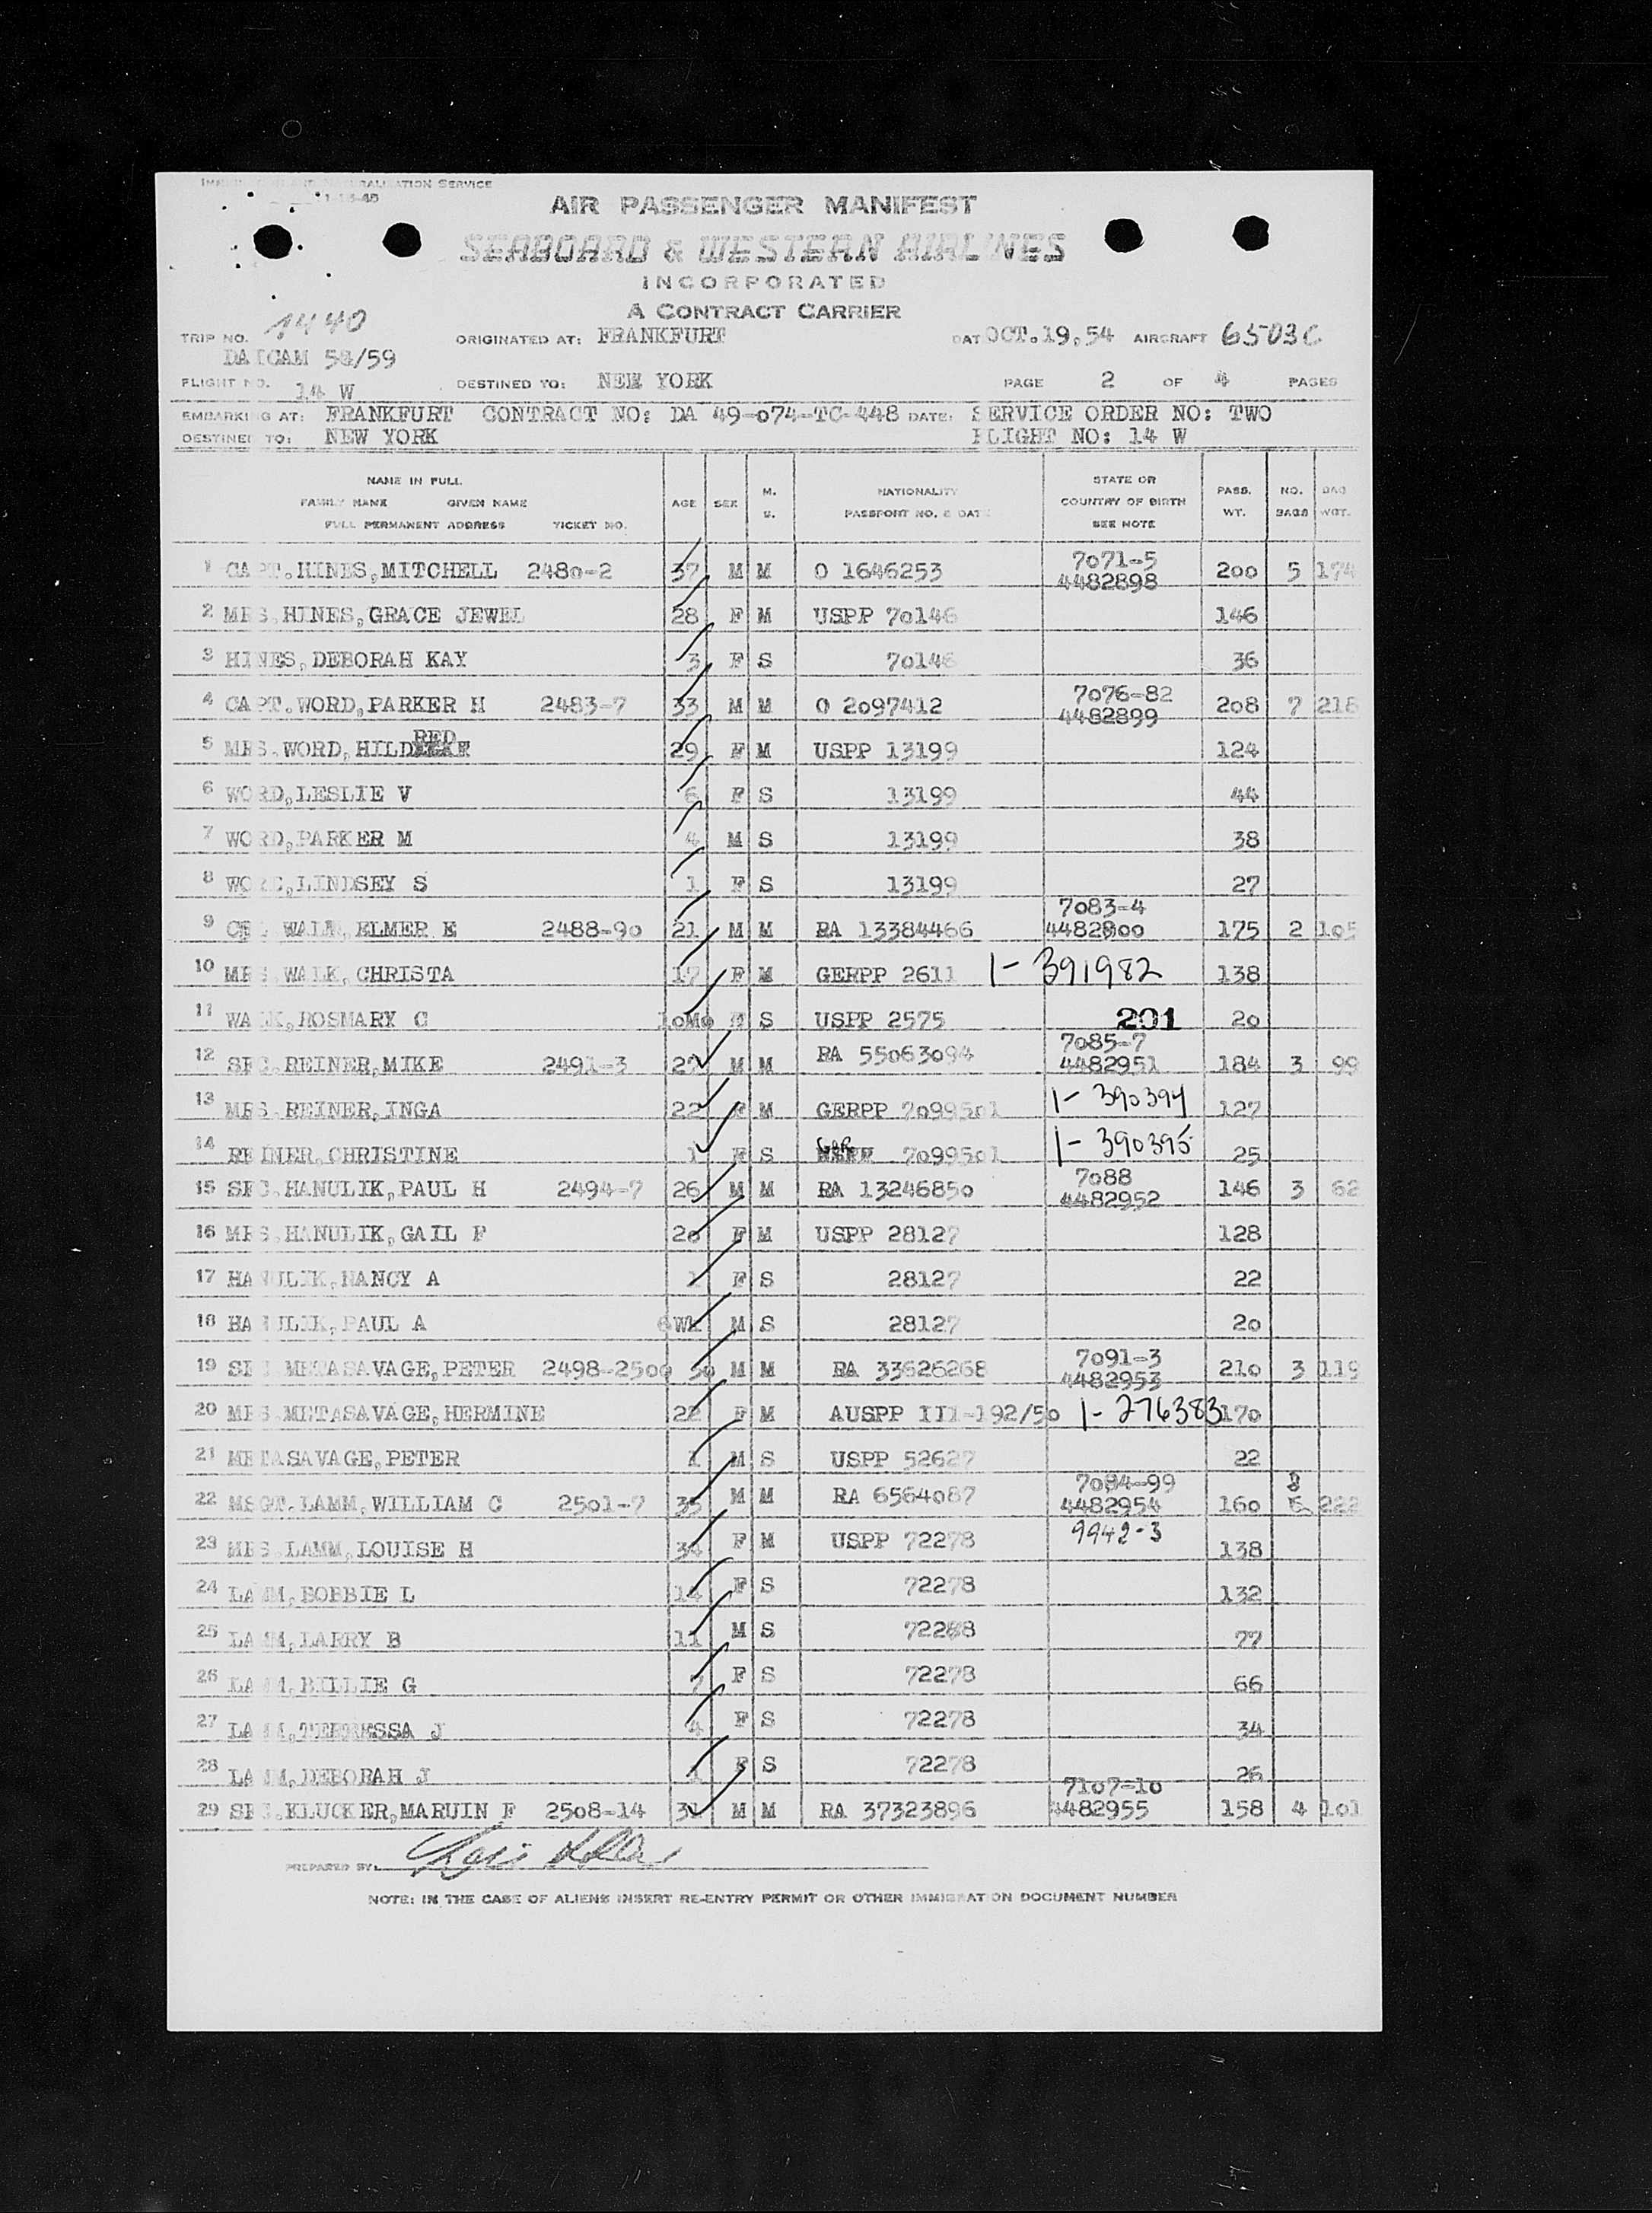 IMMIGRATION AND NATURALIZATION SERVICE
AIR PASSENGER MANIFEST
SEABOARD & WESTERN AIRLINES
INCORPORATED
A CONTRACT CARRIER
TRIP NO. 1440 ORIGINATED AT: FRANKFURT DAT OCT.19,54 AIRCRAFT 6503C
58/59
FLIGHT NO. 14 W DESTINED TO: NEW YORK PAGE 2 OF 4 PAGES
EMBARKING AT: FRANKFURT CONTRACT NO: DA 49-074-TC-448 DATE: SERVICE ORDER NO: TWO
DESTINED TO: NEW YORK FLIGHT NO: 14 W
NAME IN FULL
FAMILY NAME GIVEN NAME
FULL PERMANENT ADDRESS TICKET NO.
AGE SEX M. S. NATIONALITY PASSPORT NO. & DATE STATE OR COUNTRY OF BIRTH SEE NOTE PASS. WT. NO. BAGS BAG WGT.
1 CAPT.HINES,MITCHELL 2480-2 37 M M O 1646253 7071-5 4482898 200 5 174
2 MRS.HINES,GRACE JEWEL 28 F M USPP 70146 146
3 HINES,DEBORAH KAY 3 F S 70146 36
4 CAPT.WORD,PARKER H 2483-7 33 M M O 2097412 7076-82 4482899 208 7 218
5 MRS.WORD,HILDRED 29 F M USPP 13199 124
6 WORD,LESLIE V 6 F S 13199 44
7 WORD,PARKER M 4 M S 13199 38
8 WORD,LINDSEY S 1 F S 13199 27
9 WALK,ELMER E 2488-90 21 M M RA 13384466 7083-4 4482900 175 2 105
10 MRS.WALK,CHRISTA 17 F M GERPP 2611 1-391982 138
11 WALK,ROSMARY C 10Mo F S USPP 2575 201 20
12 SFC.REINER,MIKE 2491-3 27 M M RA 55063094 7085-7 4482951 184 3 99
13 MRS.REINER,INGA 22 F M GERPP 7099501 1-390394 127
14 REINER,CHRISTINE 1 F S Ger 7099501 1-390395 25
15 SFC.HANULIK,PAUL H 2494-7 26 M M RA 13246850 7088 4482952 146 3 62
16 MRS.HANULIK,GAIL F 20 F M USPP 28127 128
17 HANULIK,NANCY A 1 F S 28127 22
18 HANULIK,PAUL A 6Wk M S 28127 20
19 SFC METASAVAGE,PETER 2498-2500 30 M M RA 33626268 7091-3 4482953 210 3 119
20 MRS METASAVAGE,HERMINE 22 F M AUSPP III-192/50 1-276383 170
21 METASAVAGE,PETER 1 M S USPP 52627 22
22 MSGT.LAMM,WILLIAM C 2501-7 35 M M RA 6564087 7084-99 4482954 160 8 222
23 MRS.LAMM,LOUISE H 34 F M USPP 72278 9942-3 138
24 LAMM,BOBBIE L 14 F S 72278 132
25 LAMM,LARRY B 11 M S 72278 77
26 LAMM,BILLIE G 7 F S 72278 66
27 LAMM,TERRESSA J 4 F S 72278 34
28 LAMM,DEBORAH J 1 F S 72278 26
29 SFC.KLUCKER,MARUIN F 2508-14 31 M M RA 37323896 7107-10 4482955 158 4 101
PREPARED BY:
NOTE: IN THE CASE OF ALIENS INSERT RE-ENTRY PERMIT OR OTHER IMMIGRATION DOCUMENT NUMBER